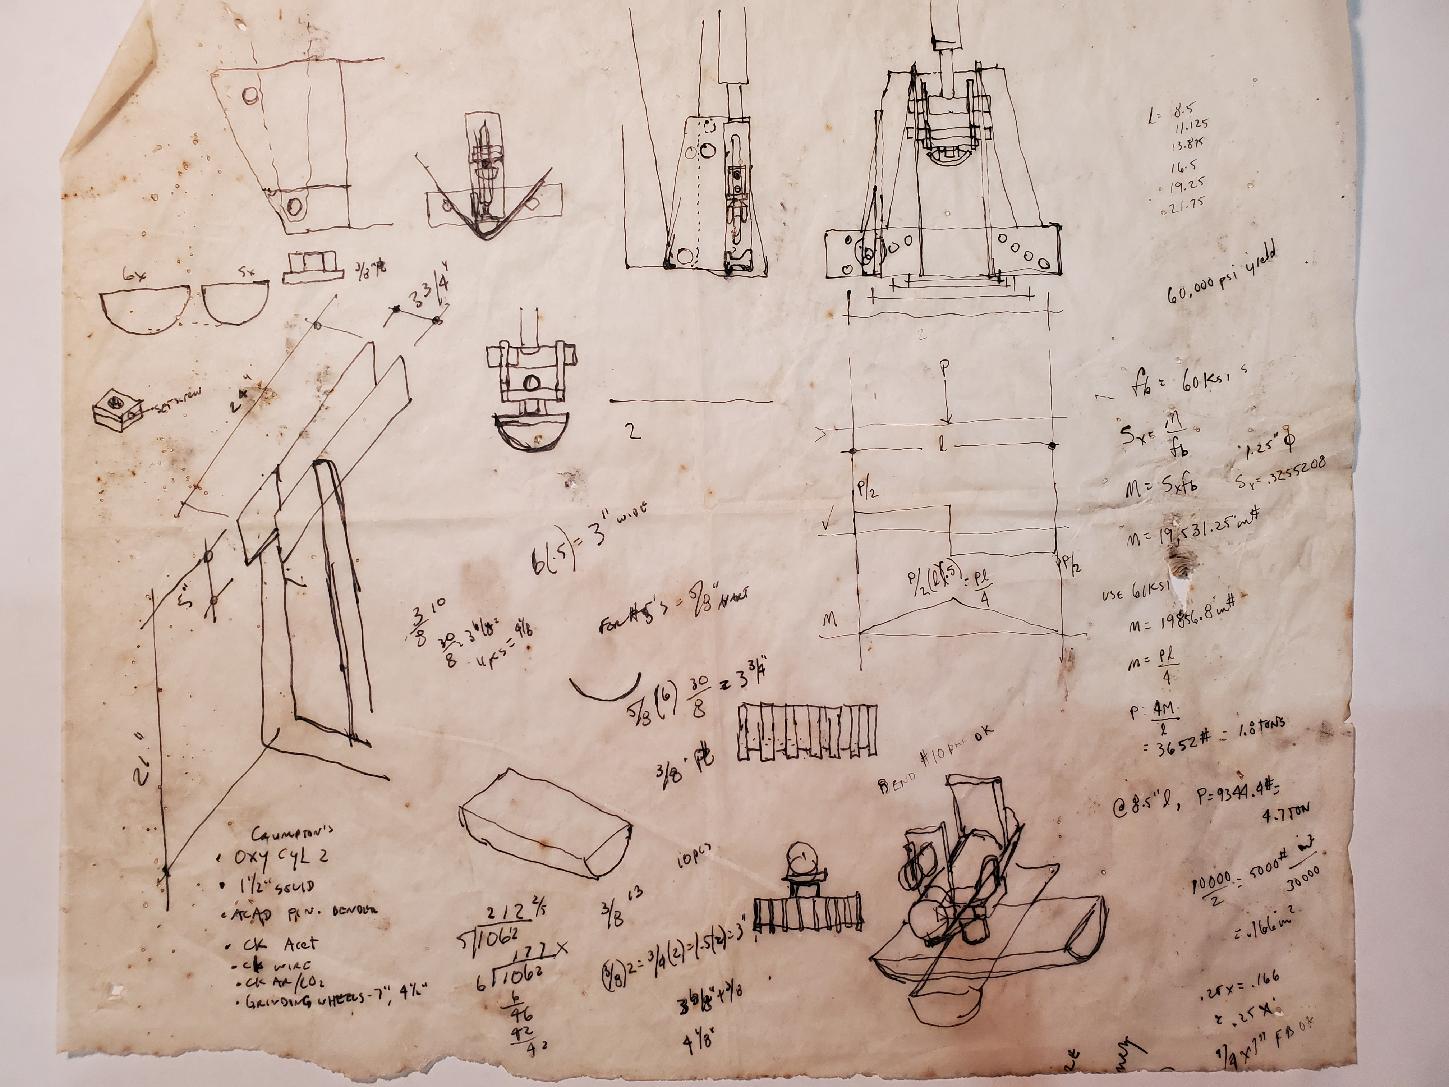 L = 8.5
11.125
13.875
16.5
19.25
21.75
6x
5x
3/8" PL
3 3/4"
24"
SET SCREW
60,000 psi yield
l
P
l
fb = 60 ksi
Sx = M
fb
1.25" φ
M = Sxfb
Sx = .3255208
P/2
2
6(.5) = 3" WIDE
M = 19,531.25 in#
P/2
P/2(l)(.5) = Pl
4
USE 61 KSI
5"
3 10
8
30
8
4 1/8
FOR #5's = 5/8"
M
M = 19856.8 in#
M = Pl
4
5/8 (6) 30 = 3 3/4"
8
P = 4M
l
= 3652# = 1.8 TONS
21"
3/8" PL
BEND #10 OK
@ 8.5" l, P = 9344.4# =
4.7 TON
CRUMPTON'S
• OXY CYL 2
• 1 1/2" SOLID
• ACAD BENDER
• CK ACET
• CK WIRE
• CK AR/CO2
• GRINDING WHEELS - 7", 4 1/2"
10 PCS
212 2/5
5 1062
177 X
6 1062
6
46
42
42
3/8 13
(3/8)2 = 3/4(2) = 1.5(2) = 3"
+ 3/8
4 1/8"
10000 = 5000# in²
2 30000
= .166 in²
.25x = .166
1/4 x 1" FB OK